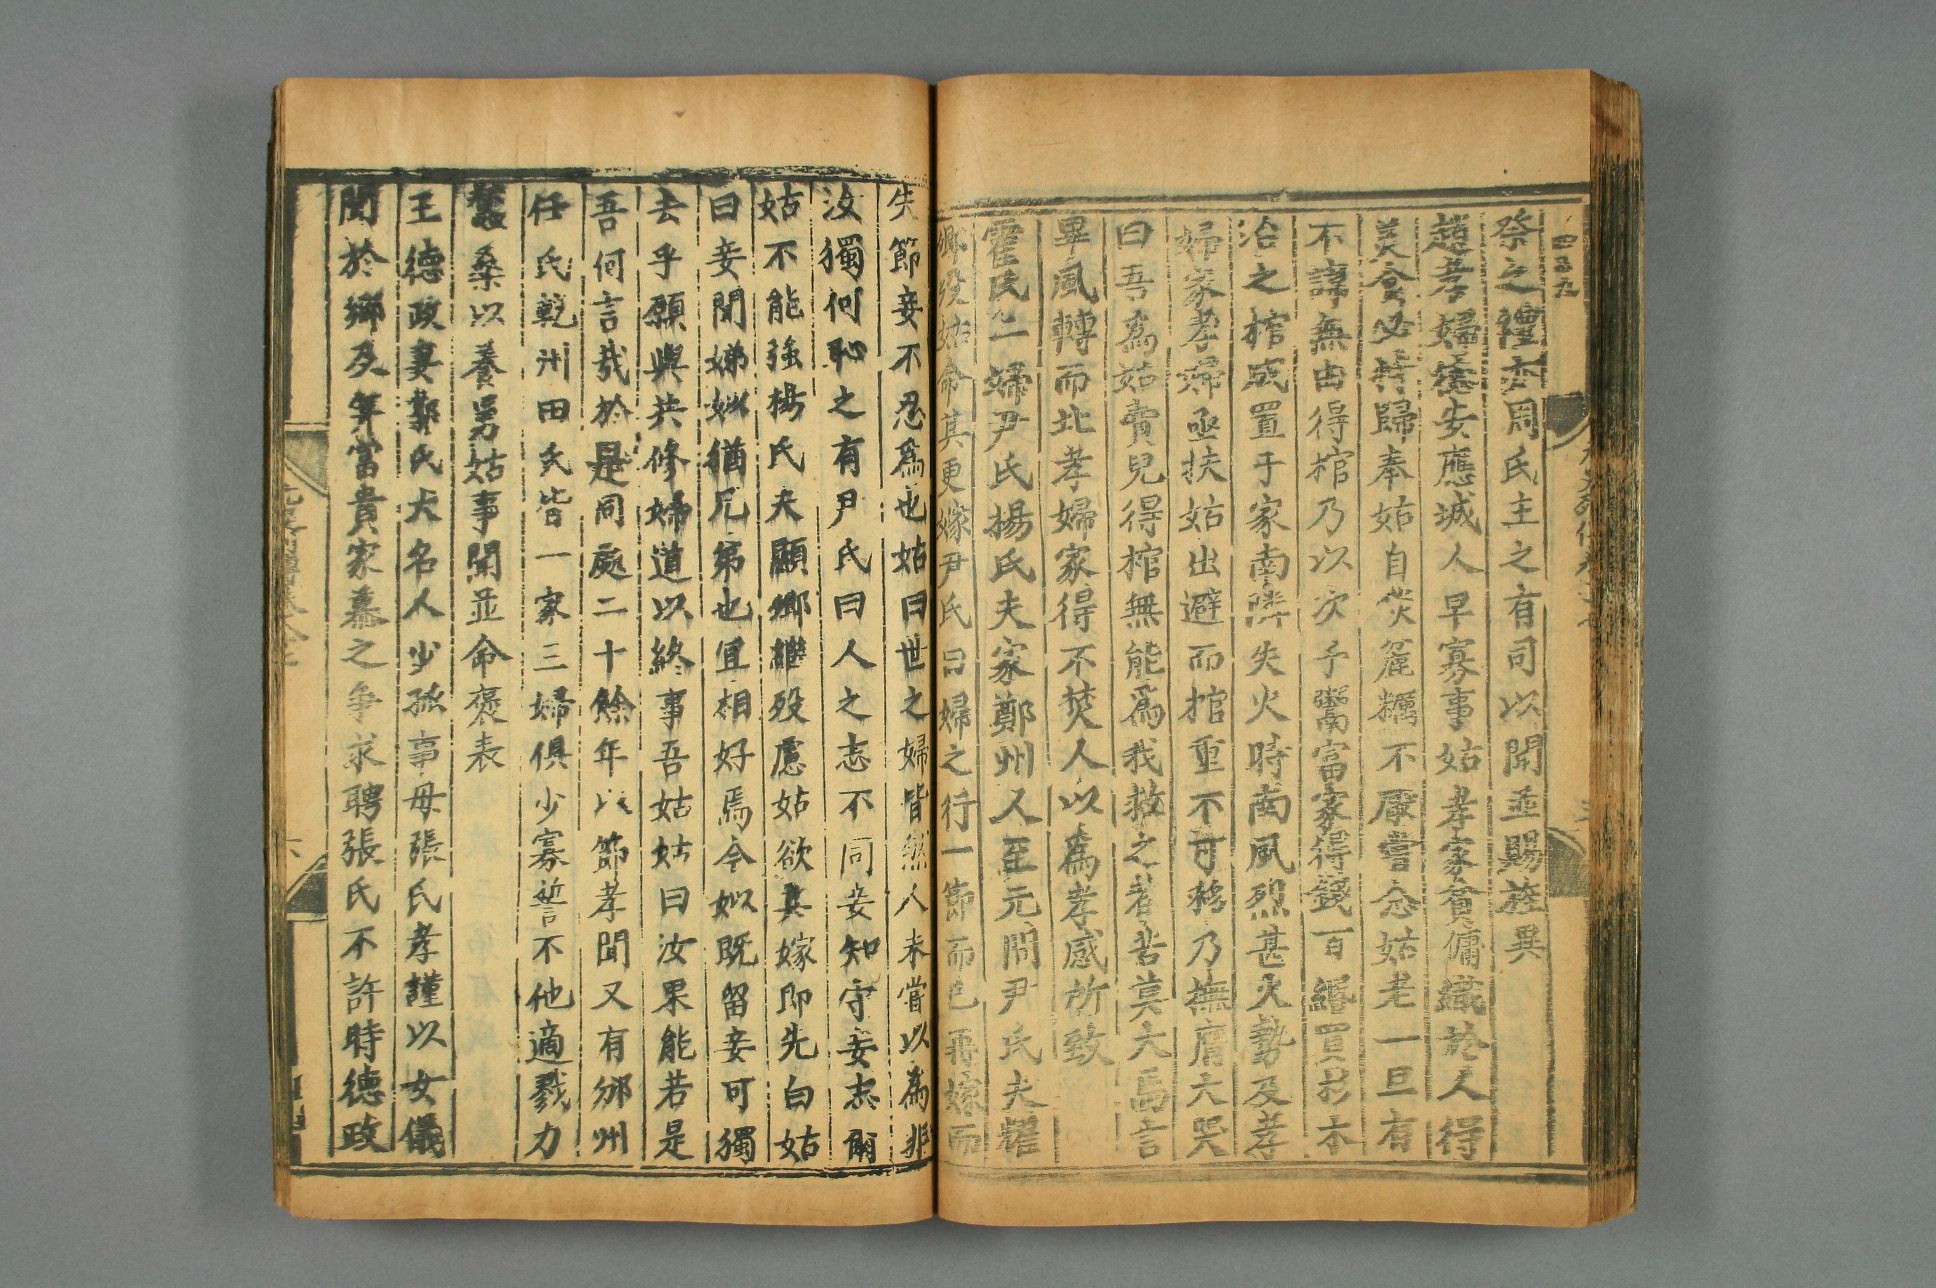 祭之禮亦周氏主之有司以聞並賜旌異
趙孝婦德安應城人早寡事姑孝家貧傭織於人得
美食必持歸奉姑自啖麄糲不厭嘗念姑老一旦有
不諱無由得棺乃以次子鬻富家得錢百緡買杉木
治之棺成置于家南隣失火時南風烈甚火勢及孝
婦家孝婦亟扶姑出避而棺重不可移乃撫膺大哭
曰吾為姑賣兒得棺無能為我救之者苦莫大焉言
畢風轉而北孝婦家得不焚人以為孝感所致
霍氏二婦尹氏楊氏夫家鄭州人至元間尹氏夫耀
卿歿姑命其更嫁尹氏曰婦之行一節而已再嫁而
失節妾不忍為也姑曰世之婦皆然人未嘗以為非
汝獨何恥之有尹氏曰人之志不同妾知守妾志爾
姑不能強楊氏夫顯卿繼歿慮姑欲其嫁即先白姑
曰妾聞娣姒猶兄弟也宜相好焉今姒既留妾可獨
去乎願與共修婦道以終事吾姑姑曰汝果能若是
吾何言哉於是同處二十餘年以節孝聞又有邠州
任氏乾州田氏皆一家三婦俱少寡誓不他適戮力
蠶桑以養舅姑事聞並命褒表
王德政妻郭氏大名人少孤事母張氏孝謹以女儀
聞於鄉及笄富貴家慕之爭求聘張氏不許時德政
六